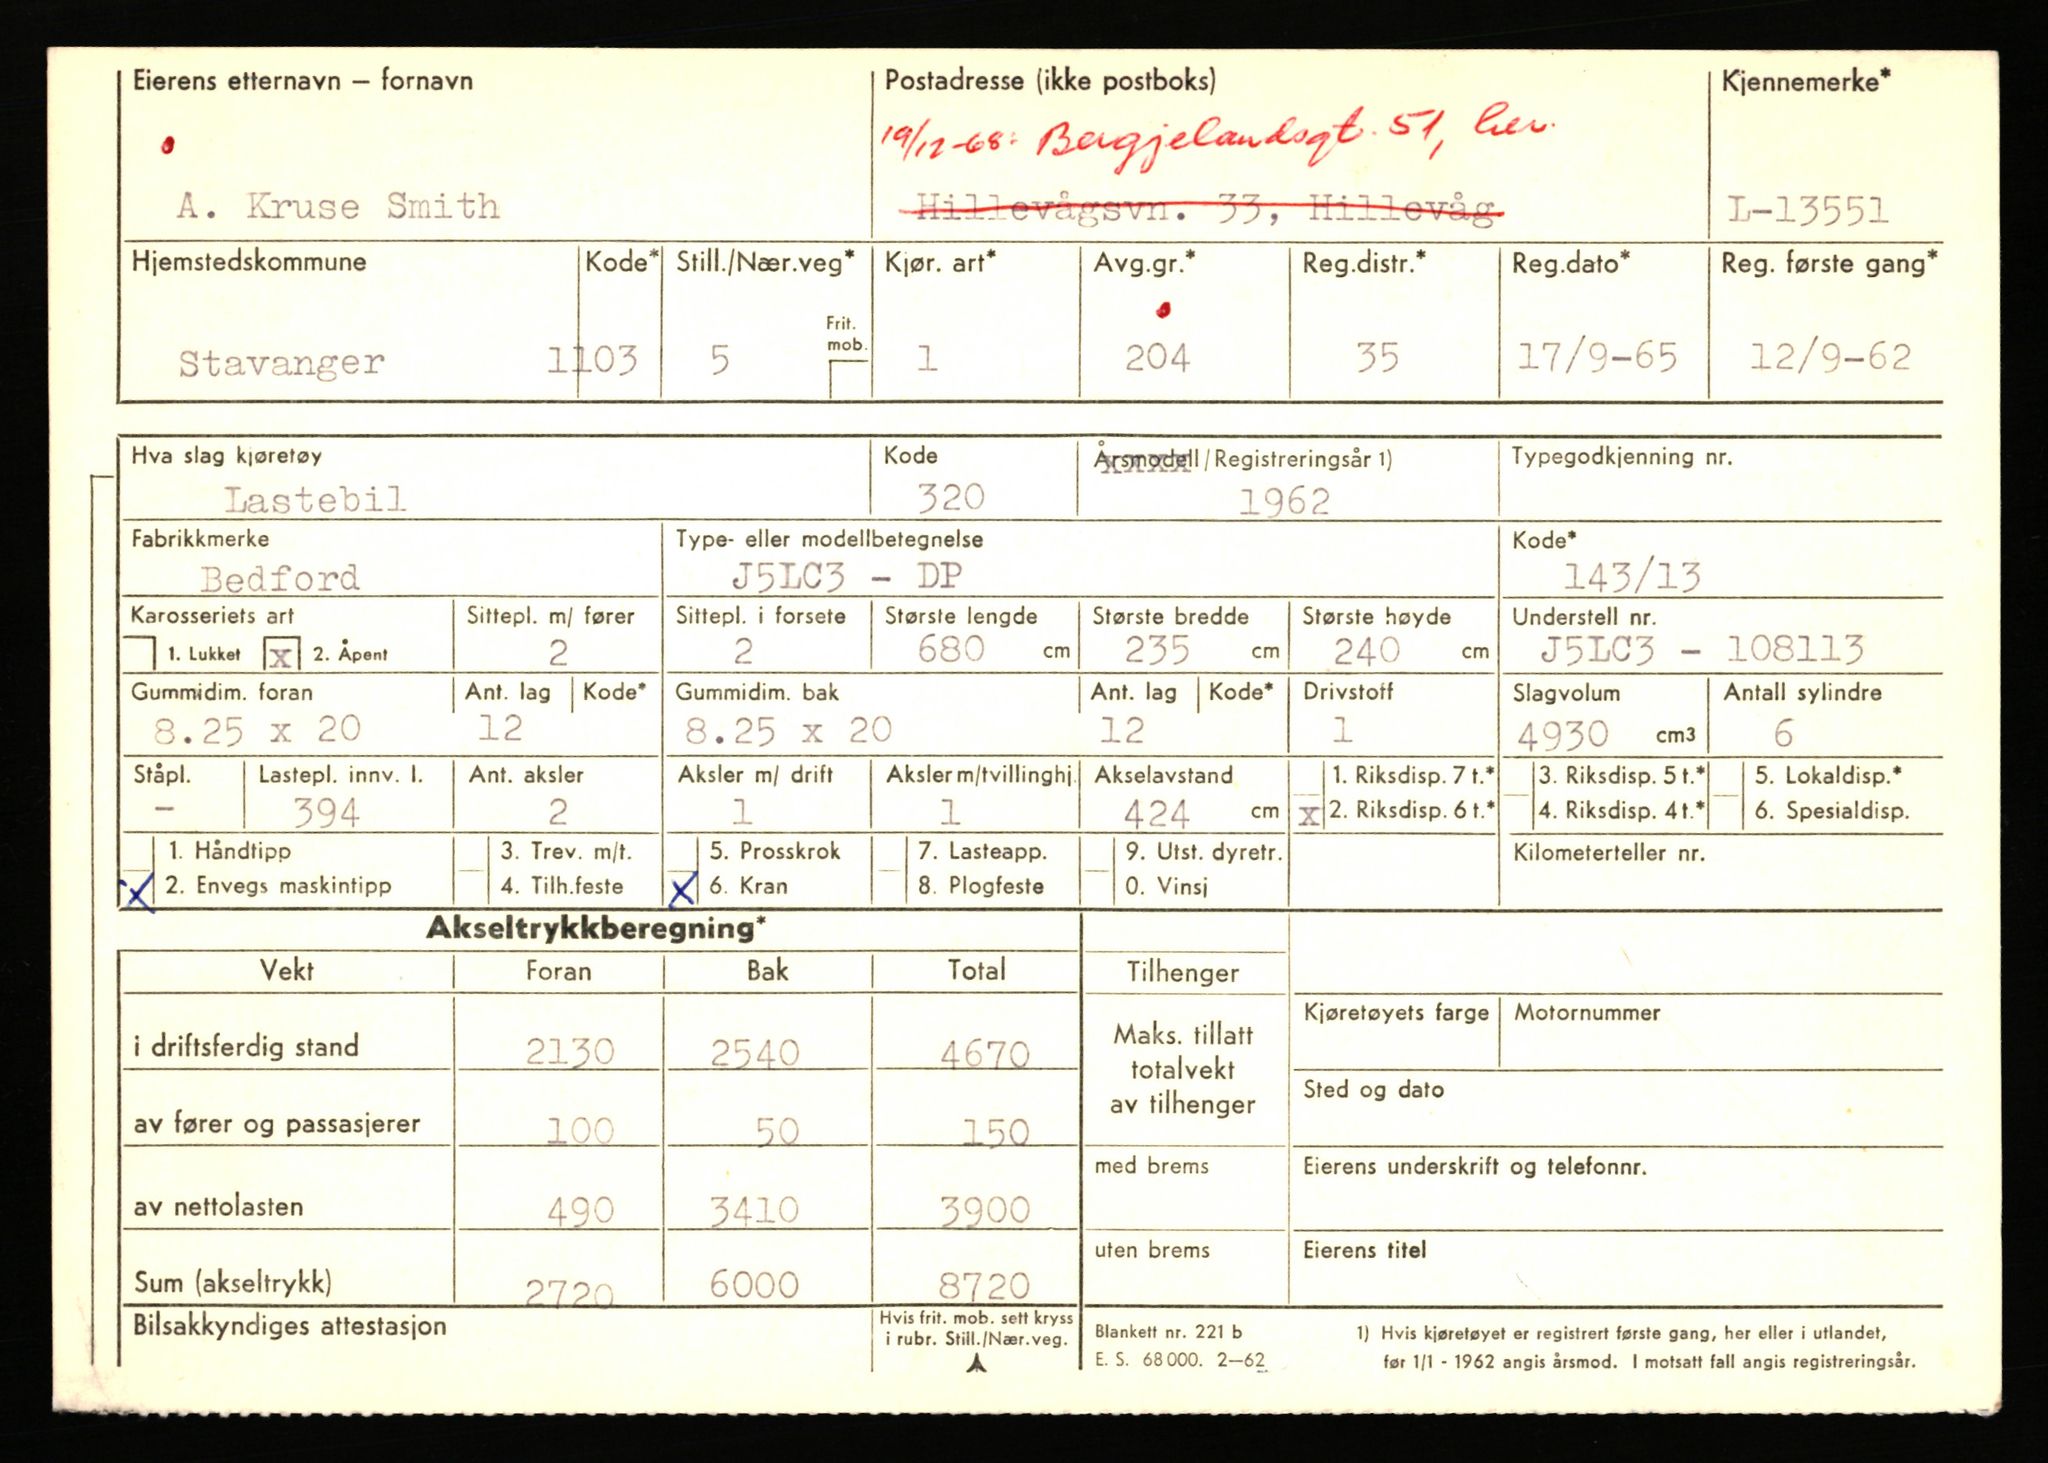 Eierens etternavn – fornavn Postadresse (ikke postboks) Kjennemerke*
19/12-68: Bergjelandsgt. 51, her.
A. Kruse Smith Hillevågsvn. 33, Hillevåg L-13551
Hjemstedskommune Kode* Still./Nær.veg* Kjør. art* Avg.gr.* Reg.distr.* Reg.dato* Reg. første gang*
Frit.
mob.
Stavanger 1103 5 1 204 35 17/9-65 12/9-62
Hva slag kjøretøy Kode Årsmodell/Registreringsår 1) Typegodkjenning nr.
Lastebil 320 1962
Fabrikkmerke Type- eller modellbetegnelse Kode*
Bedford J5LC3 - DP 143/13
Karosseriets art Sittepl. m/ fører Sittepl. i forsete Største lengde Største bredde Største høyde Understell nr.
1. Lukket x 2. Åpent 2 2 680 cm 235 cm 240 cm J5LC3 - 108113
Gummidim. foran Ant. lag Kode* Gummidim. bak Ant. lag Kode* Drivstoff Slagvolum Antall sylindre
8.25 x 20 12 8.25 x 20 12 1 4930 cm3 6
Ståpl. Lastepl. innv. l. Ant. aksler Aksler m/ drift Aksler m/tvillinghj. Akselavstand 1. Riksdisp. 7 t.* 3. Riksdisp. 5 t.* 5. Lokaldisp.*
- 394 2 1 1 424 cm x 2. Riksdisp. 6 t.* 4. Riksdisp. 4 t.* 6. Spesialdisp.
1. Håndtipp 3. Trev. m/t. 5. Prosskrok 7. Lasteapp. 9. Utst. dyretr. Kilometerteller nr.
x 2. Envegs maskintipp 4. Tilh.feste x 6. Kran 8. Plogfeste 0. Vinsj
Akseltrykkberegning*
Vekt Foran Bak Total Tilhenger
Kjøretøyets farge Motornummer
i driftsferdig stand 2130 2540 4670 Maks. tillatt
totalvekt
av tilhenger
Sted og dato
av fører og passasjerer 100 50 150
med brems Eierens underskrift og telefonnr.
av nettolasten 490 3410 3900
uten brems Eierens titel
Sum (akseltrykk) 2720 6000 8720
Bilsakkyndiges attestasjon Hvis frit. mob. sett kryss
i rubr. Still./Nær.veg.
Blankett nr. 221 b 1) Hvis kjøretøyet er registrert første gang, her eller i utlandet,
E. S. 68 000. 2–62 før 1/1 - 1962 angis årsmod. I motsatt fall angis registreringsår.